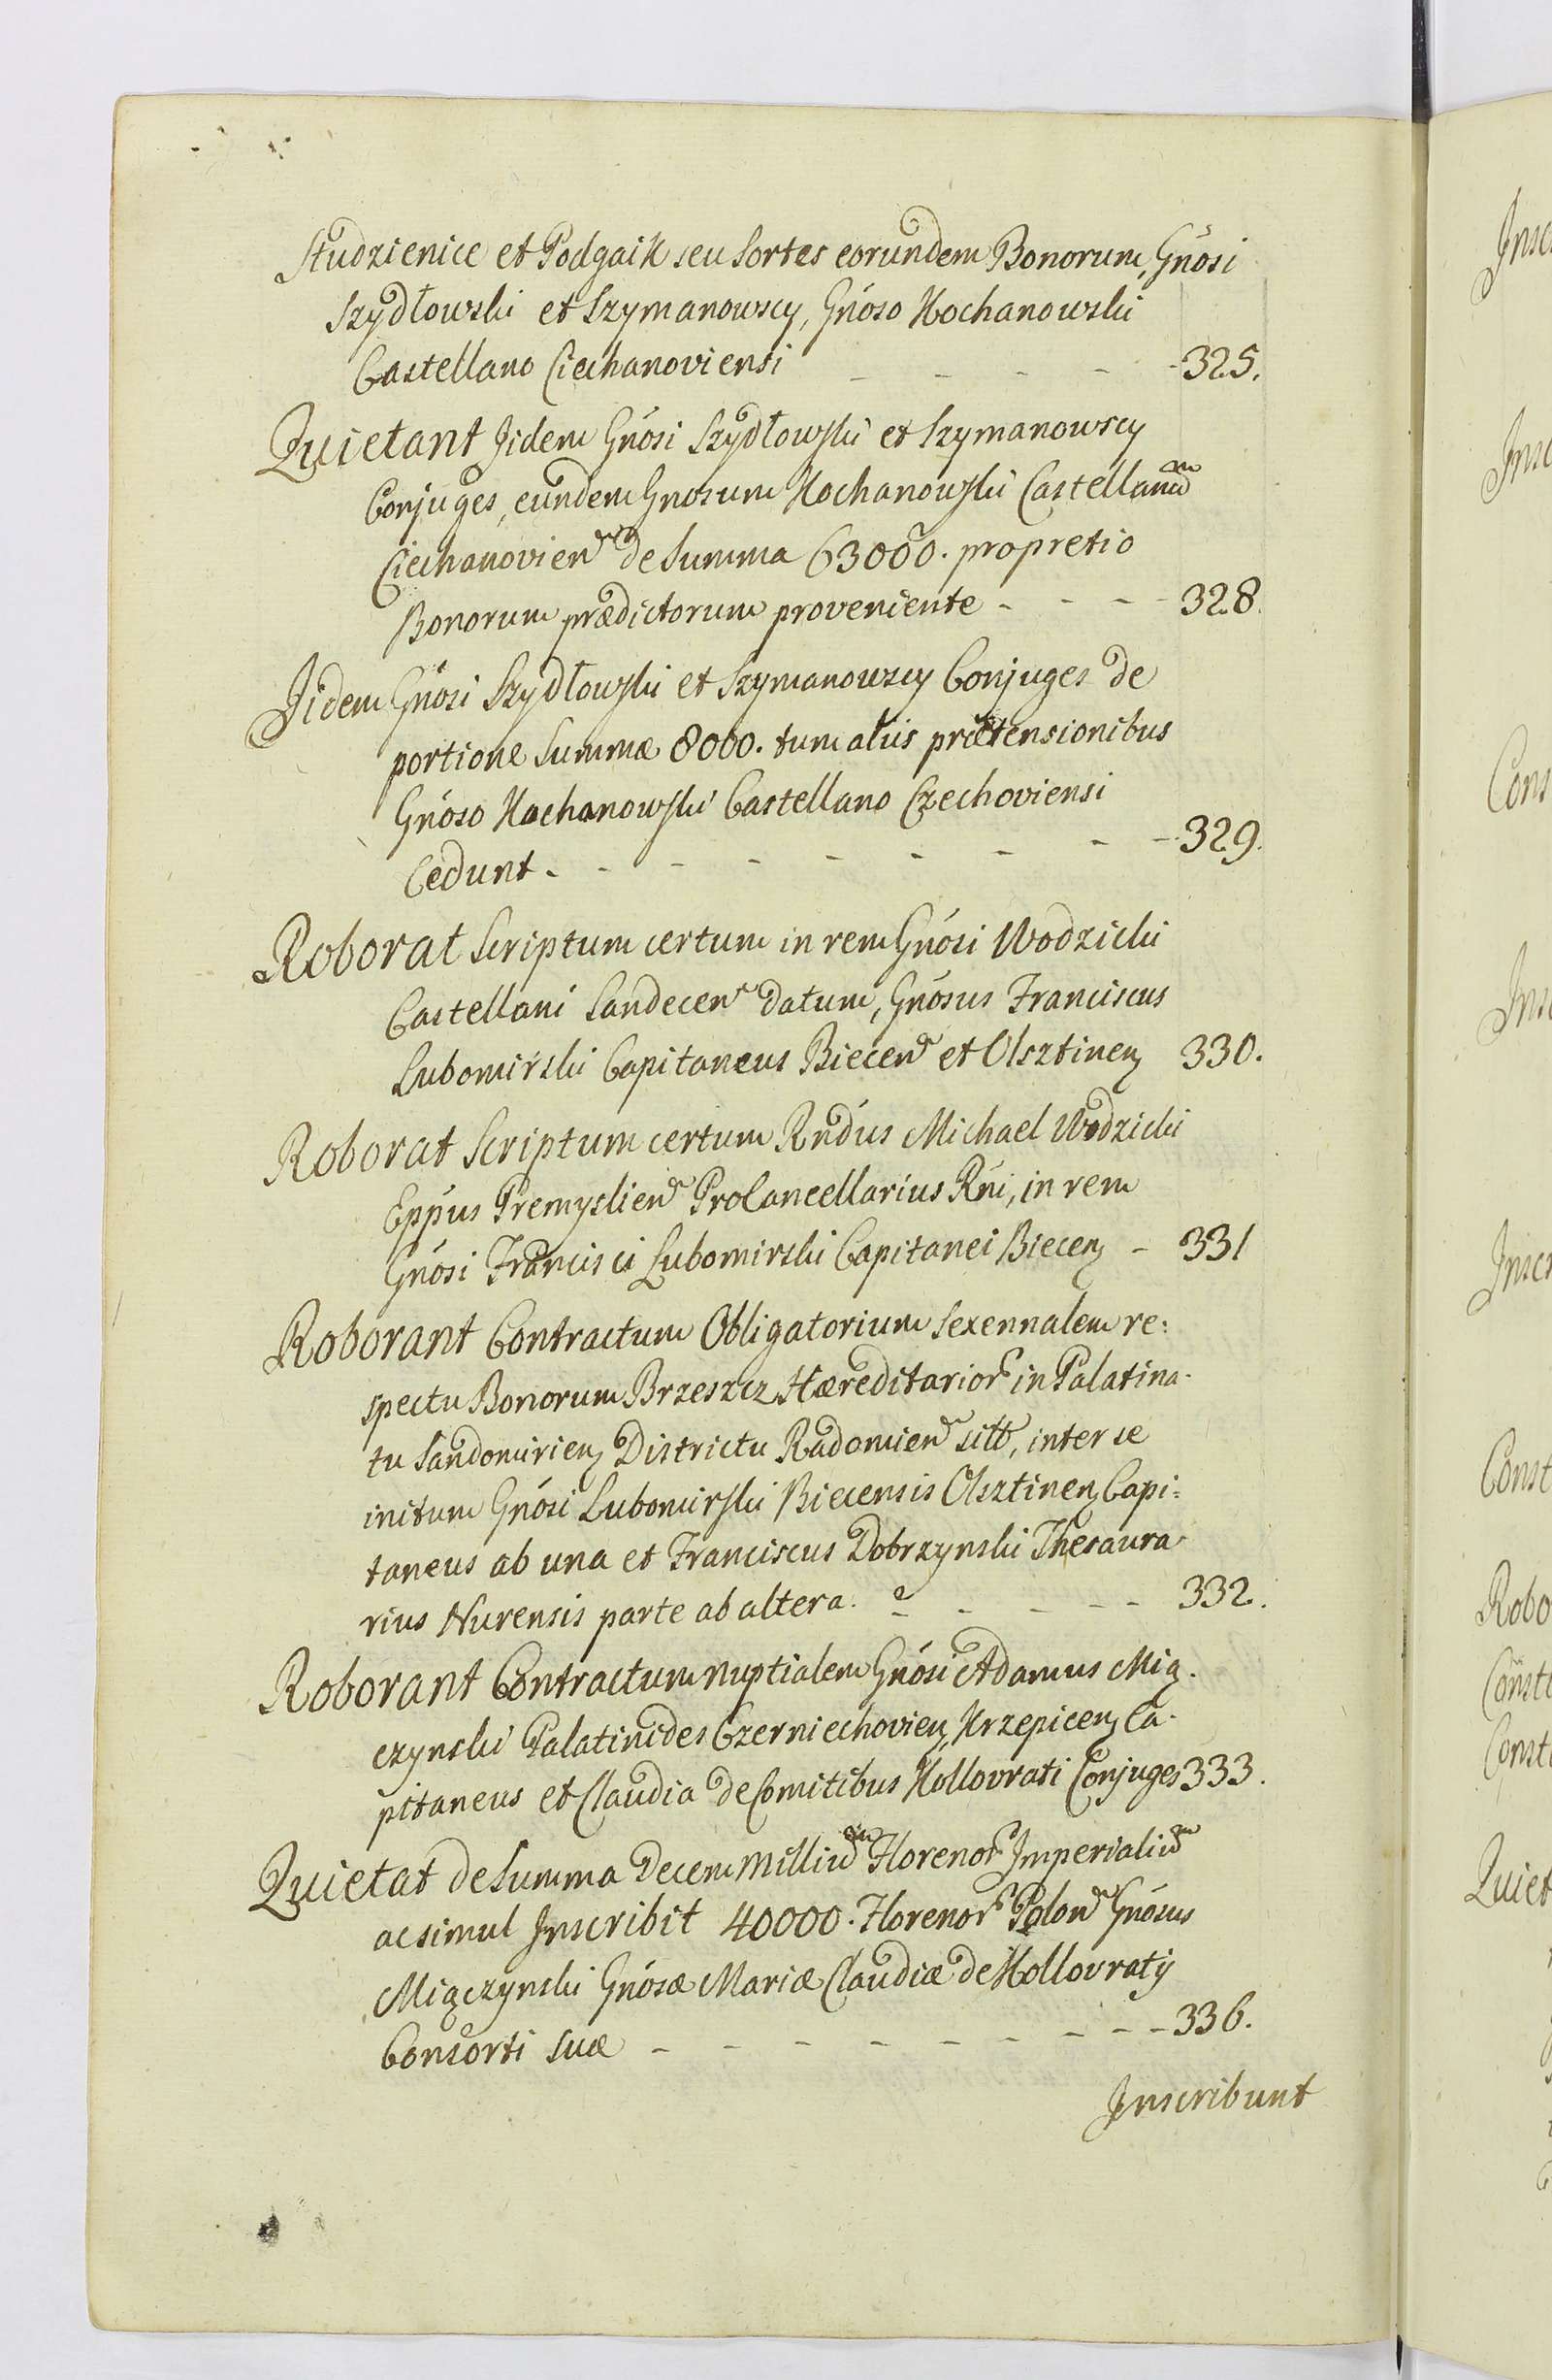 Studzienice et Podgaik seu Sortes eorundem Bonorum, Gnosi
Szydłowski et Szymanowscy, Gnoso Kochanowski
Castellano Ciechanoviensi - - - - - 325.
Quietant Jidem Gnosi Szydłowski et Szymanowscy
Conjuges, eundem Gnosum Kochanowski Castellanum
Ciechanovien de Summa 63000. pro pretio
Bonorum prædictorum proveniente - - - - 328.
Jidem Gnosi Szydłowski et Szymanowscy Conjuges de
portione Summæ 8000. tum aliis prætensionibus
Gnoso Kochanowski Castellano Czechoviensi
Cedunt - - - - - - - - 329.
Roborat Scriptum certum in rem Gnosi Wodzicki
Castellani Sandecen datum, Gnosus Franciscus
Lubomirski Capitaneus Biecen et Olsztinen 330.
Roborat Scriptum certum Rndus Michael Wodzicki
Eppus Premyslien ProCancellarius Rni, in rem
Gnosi Francisci Lubomirski Capitanei Biecen - 331
Roborant Contractum Obligatorium Sexennalem re:
spectu Bonorum Brzeszcz Hæreditarior in Palatina-
tu Sandomirien Districtu Radomien sitt, inter se
initum Gnosi Lubomirski Biecensis Olsztinen Capi:
taneus ab una et Franciscus Dobrzynski Thesaura
rius Nurensis parte ab altera. - - - - - 332.
Roborant Contractum nuptialem Gnosi Adamus Mią-
czynski Palatinides Czerniechovien, Krzepicen Ca-
pitaneus et Claudia de Comitibus Kollovrati Conjuges 333.
Quietat de Summa Decem Millium Florenor Imperialium
ac simul Inscribit 40000. Florenor Polon Gnosus
Miączynski Gnosæ Mariæ Claudiæ de Kollovraty
Consorti Suæ - - - - - - - - 336.
Inscribunt